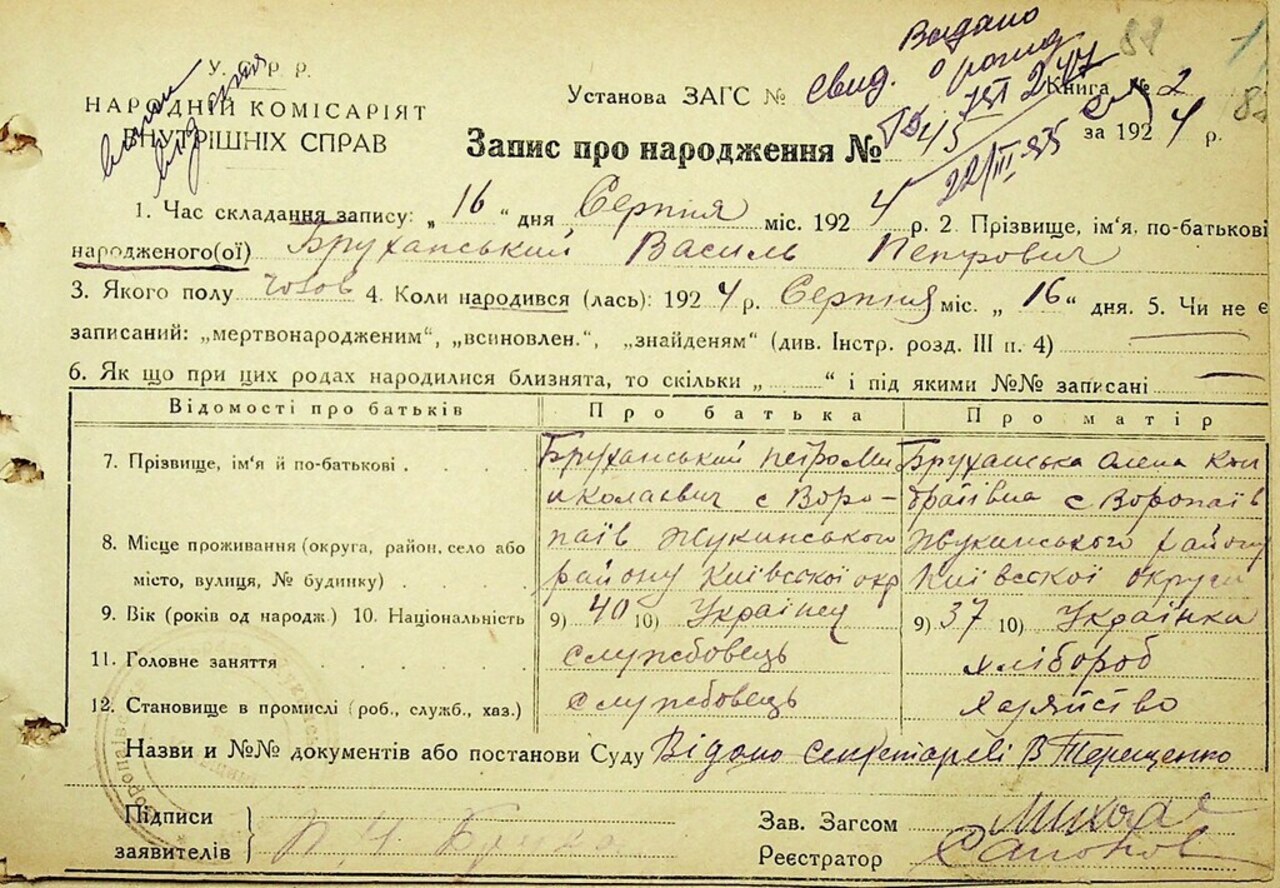 У. Р. Р.
НАРОДНІЙ КОМІСАРІЯТ
ВНУТРІШНІХ СПРАВ
Видано
свид. о рожд
Установа ЗАГС №
Книга № 2
Запис про народження № 45
за 1924 р.
22/III-35
82
1. Час складання запису: „ 16 “ дня Серпня міс. 1924 р. 2. Прізвище, ім'я, по-батькові
народженого(ої) Бруханський Василь Петрович
3. Якого полу чолов 4. Коли народився (лась): 1924 р. Серпня міс. „ 16 “ дня. 5. Чи не є
записаний: „мертвонародженим“, „всиновлен.“, „знайденям“ (див. Інстр. розд. III п. 4)
6. Як що при цих родах народилися близнята, то скільки „ “ і під якими №№ записані
Відомості про батьків Про батька Про матір
7. Прізвище, ім'я й по-батькові Бруханський Петро Ми Бруханська Олена Кон
иколаевич с Воро- дратівна с Воропаїв
8. Місце проживання (округа, район, село або паїв Жукинського Жукинського району
місто, вулиця, № будинку) району Київської окр Київської округи
9. Вік (років од народж.) 10. Національність 9) 40 10) Українец 9) 37 10) Українка
11. Головне заняття службовець хлібороб
12. Становище в промислі (роб., служб., хаз.) службовець хазяйство
Назви и №№ документів або постанови Суду Відомо секретареві В Терещенко
Підписи
заявителів
Зав. Загсом
Реєстратор